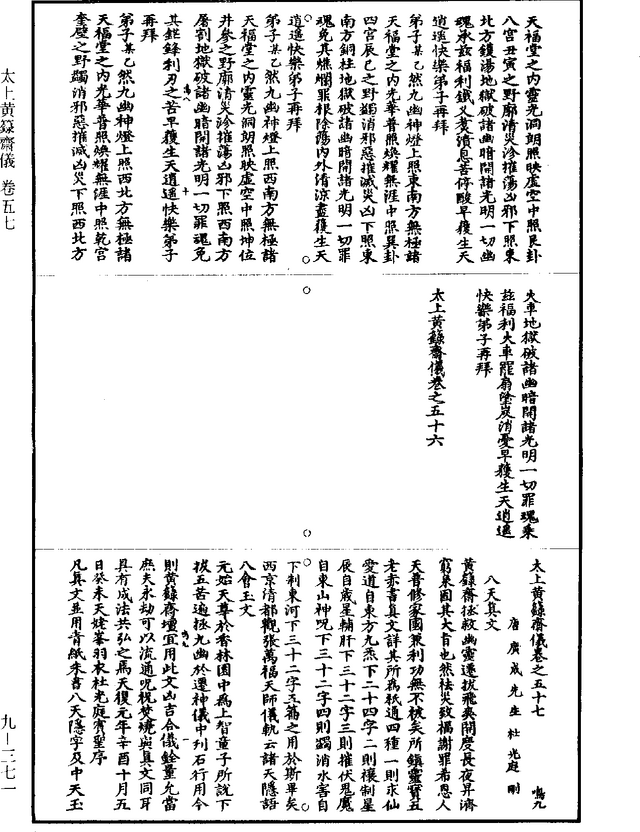 天福堂之內靈光洞朗照映虛空中照艮卦
八宮丑寅之野廓清災沴摧蕩凶邪下照東
北方鑊湯地獄破諸幽暗開諸光明一切幽
魂承茲福利鐵义憂濆息苦停酸早獲生天
逍遙快樂弟子再拜
弟子某乙然九幽神燈上照東南方無極諸
天福堂之內光華普照煥耀無涯中照巽卦
四宮辰巳之野蠲消邪惡摧滅災凶下照東
南方銅柱地獄破諸幽暗開諸光明一切罪
魂免其燋爛罪根除蕩內外清涼盡獲生天
逍遙快樂弟子再拜
弟子某乙然九幽神燈上照西南方無極諸
天福堂之內靈光洞朗照映虛空中照坤位
井參之野廓清災沴摧蕩凶邪下照西南方
屠割地獄破諸幽暗開諸光明一切罪魂免
其鋩鋒利刃之苦早獲生天逍遙快樂弟子
再拜
弟子某乙然九幽神燈上照西北方無極諸
天福堂之內光華普照煥耀無涯中照乾宮
奎壁之野蠲消邪惡摧滅凶災下照西北方
火車地獄破諸幽暗開諸光明一切罪魂乘
茲福利火車罷扇塗炭消憂早獲生天逍遙
快樂弟子再拜
太上黃籙齋儀卷之五十六
太上黃籙齋儀卷之五十七
鳴九
唐廣成先生杜光庭刪
八天真文
黃籙齋拯救幽靈遷拔飛爽開度長夜昇濟
窮泉固其大旨也然祛災致福謝罪希恩人
天普修家國兼利功無不被矣所鎮靈寶五
老赤書真文詳其所為祇通四種一則求仙
愛道自東方九炁下二十四字二則禳制星
辰自歲星輔肝下三十二字三則摧伏鬼魔
自東山神呪下三十二字四則蠲消水害自
下制東河下三十二字舊之用於斯畢矣
西京清都觀張萬福天師儀軌云諸天隱語
八會玉文
元始天尊於香林園中為上智童子所說下
拔五苦遍拯九幽於遷神儀中刊石行用今
則黃籙齋壇宜用此文凶吉合儀銓量允當
庶夫永劫可以流通呪祝焚燒與真文同耳
具有成法共弘之焉天復元年辛酉十月五
日癸未天姥峯羽衣杜光庭賓聖序
凡真文並用青紙朱書八天隱字及中天玉
太上黃籙齋儀 卷五七
九－三七一